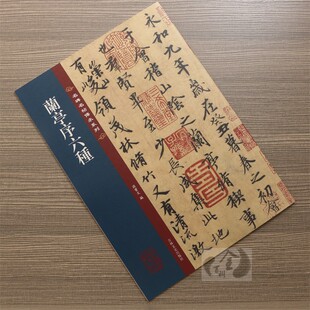 永和九年歲在癸丑暮春之初
于會稽山陰之蘭亭脩禊事
也羣賢畢至少長咸集此地
有崇山峻領茂林脩竹又有清流激
名碑名帖傳承系列
蘭亭序六種